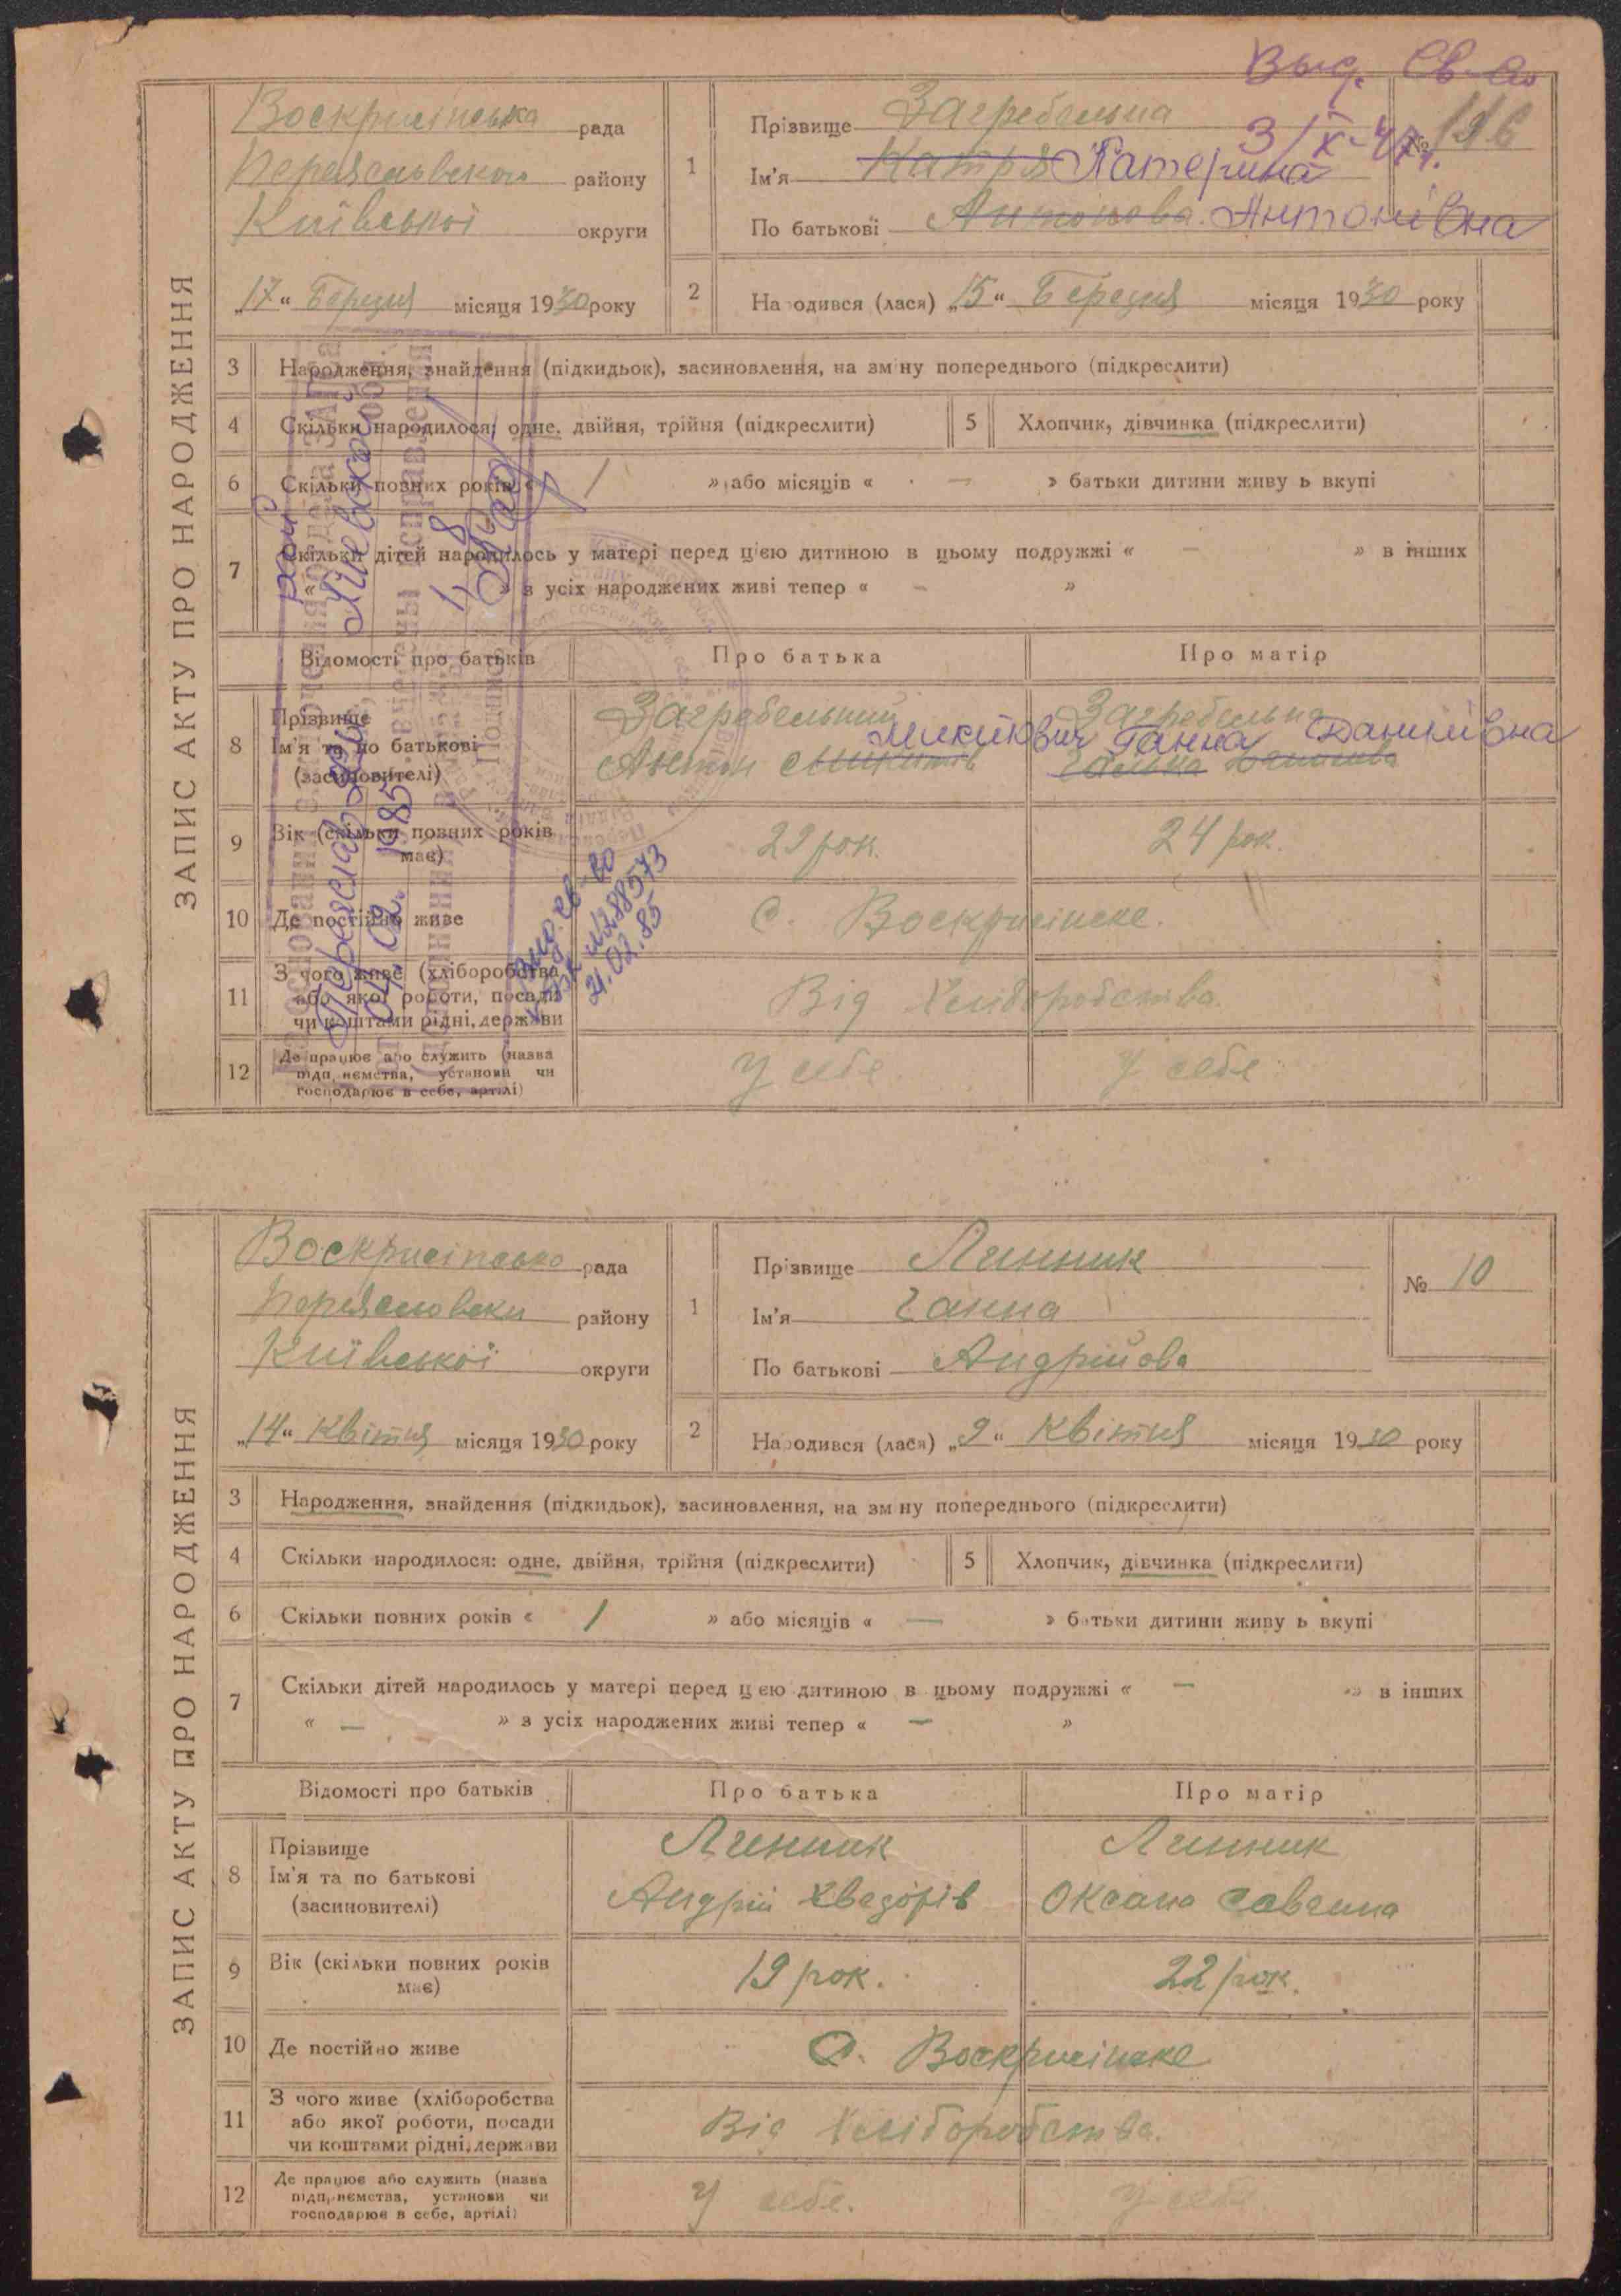 Выд. Св-во
3/X-47г.
ЗАПИС АКТУ ПРО НАРОДЖЕННЯ
Воскрисінська рада
Переяславського району
Київської округи
„17“ Березня місяця 1930 року
1 Прізвище Загребельна
Ім'я Катря Катерина
По батькові Антонова Антонівна
№
2 Народився (лася) „15“ Березня місяця 1930 року
3 Народження, знайдення (підкидьок), засиновлення, на зміну попереднього (підкреслити)
4 Скільки народилося: одне, двійня, трійня (підкреслити) 5 Хлопчик, дівчинка (підкреслити)
6 Скільки повних років « 1 » або місяців « — » батьки дитини живуть вкупі
7 Скільки дітей народилось у матері перед цією дитиною в цьому подружжі « — » в інших
« » з усіх народжених живі тепер « — »
Відомості про батьків Про батька Про матір
8 Прізвище Загребельний Загребельна
Ім'я та по батькові Микитович Ганна Данилівна
(засиновителі) Антон Микитів Галька
9 Вік (скільки повних років має) 29 рок. 24 рок.
10 Де постійно живе С. Воскрисінське.
11 З чого живе (хліборобства
або якої роботи, посади Від Хліборобства.
чи коштами рідні, держави
12 Де працює або служить (назва
підприємства, установи чи У себе У себе
господарює в себе, артілі)
Выд. св-во
№288573
21.02.85
ЗАПИС АКТУ ПРО НАРОДЖЕННЯ
Воскрисінська рада
Переясловськи району
Київської округи
„14“ Квітня місяця 1930 року
1 Прізвище Линник
Ім'я Ганна
По батькові Андрийова
№ 10
2 Народився (лася) „9“ Квітня місяця 1930 року
3 Народження, знайдення (підкидьок), засиновлення, на зміну попереднього (підкреслити)
4 Скільки народилося: одне, двійня, трійня (підкреслити) 5 Хлопчик, дівчинка (підкреслити)
6 Скільки повних років « 1 » або місяців « — » батьки дитини живуть вкупі
7 Скільки дітей народилось у матері перед цією дитиною в цьому подружжі « — » в інших
« — » з усіх народжених живі тепер « — »
Відомості про батьків Про батька Про матір
8 Прізвище Линник Линник
Ім'я та по батькові Андрій Хведорів Оксана Савчина
(засиновителі)
9 Вік (скільки повних років має) 19 рок. 22 рок.
10 Де постійно живе С. Воскрисінске
11 З чого живе (хліборобства
або якої роботи, посади Від Хліборобства.
чи коштами рідні, держави
12 Де працює або служить (назва
підприємства, установи чи У себе. У себе
господарює в себе, артілі)